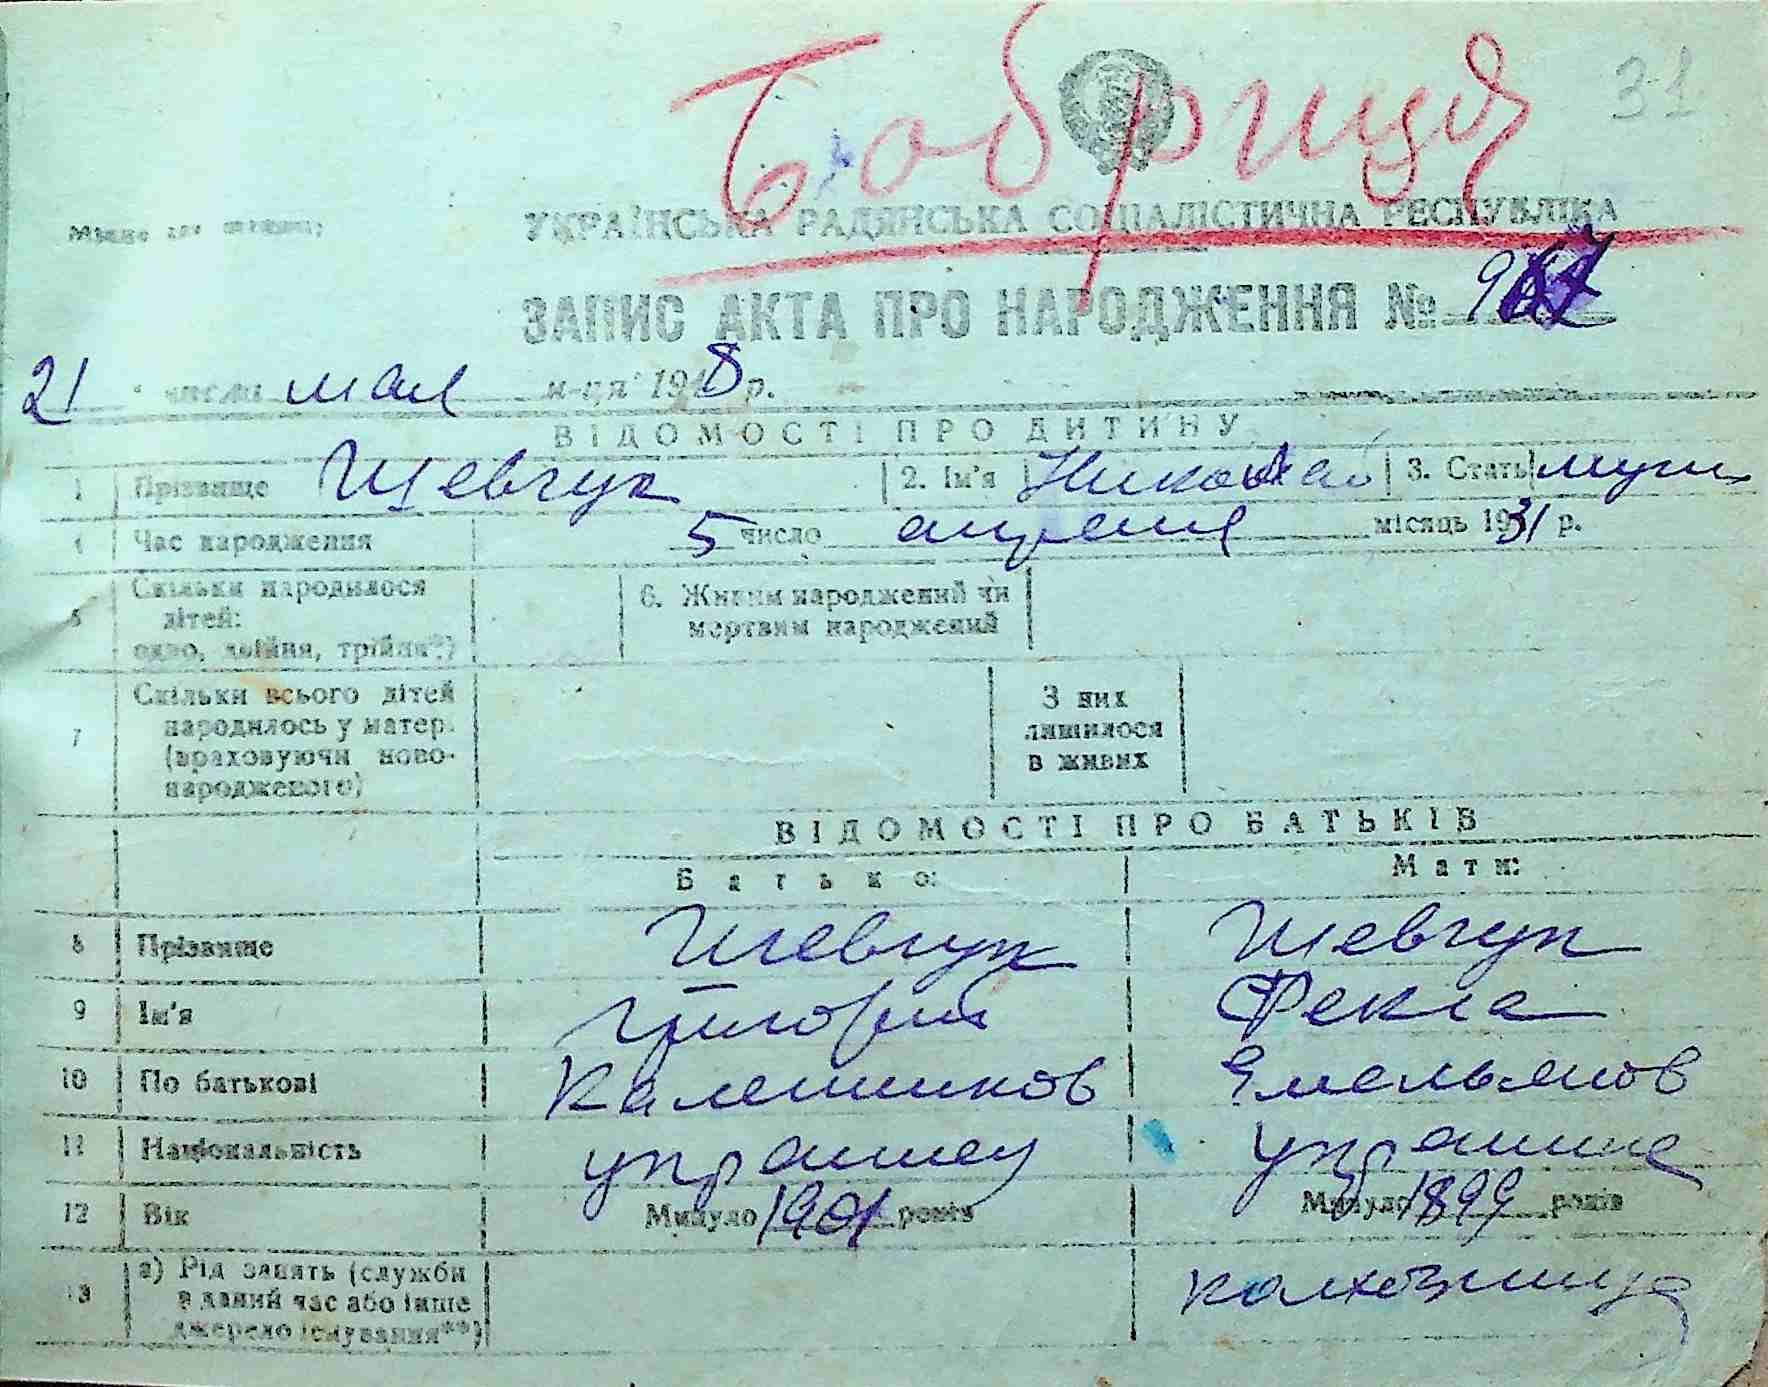 Бобриця
31
Місце для штампу
УКРАЇНСЬКА РАДЯНСЬКА СОЦІАЛІСТИЧНА РЕСПУБЛІКА
ЗАПИС АКТА ПРО НАРОДЖЕННЯ №
21 числа мая м-ця 1948 р.
ВІДОМОСТІ ПРО ДИТИНУ
1 Прізвище Шевчук 2. Ім'я Николай 3. Стать муж
4 Час народження 5 число апреля місяць 1931 р.
5 Скільки народилося дітей: одно, двійня, трійня*) 6. Живим народжений чи мертвим народжений
7 Скільки всього дітей народилось у матері (враховуючи новонародженого) З них лишилося в живих
ВІДОМОСТІ ПРО БАТЬКІВ
Батько: Мати:
8 Прізвище Шевчук Шевчук
9 Ім'я Григорий Фекла
10 По батькові Калеников Емельянов
11 Національність украинец украинка
12 Вік Минуло 1901 років Минуло 1899 років
13 а) Рід занять (служби в даний час або інше джерело існування**) колхозница